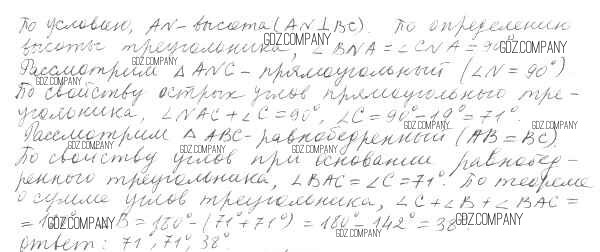 По условию, AN-высота (AN⊥BC). По определению
высоты треугольника, ∠BNA = ∠CNA = 90°
Рассмотрим △ANC-прямоугольный (∠N = 90°)
По свойству острых углов прямоугольного тре-
угольника, ∠NAC+∠C=90°, ∠C=90°-19°=71°.
Рассмотрим △ABC-равнобедренный (AB=BC).
По свойству углов при основании равнобед-
ренного треугольника, ∠BAC=∠C=71°. По теореме
о сумме углов треугольника, ∠C+∠B+∠BAC=
= 180° B=180°-(71°+71°)=180°-142°=38°
ответ: 71°, 71°, 38°
GDZ.COMPANY
GDZ.COMPANY
GDZ.COMPANY
GDZ.COMPANY
GDZ.COMPANY
GDZ.COMPANY
GDZ.COMPANY
GDZ.COMPANY
GDZ.COMPANY
GDZ.COMPANY
GDZ.COMPANY
GDZ.COMPANY